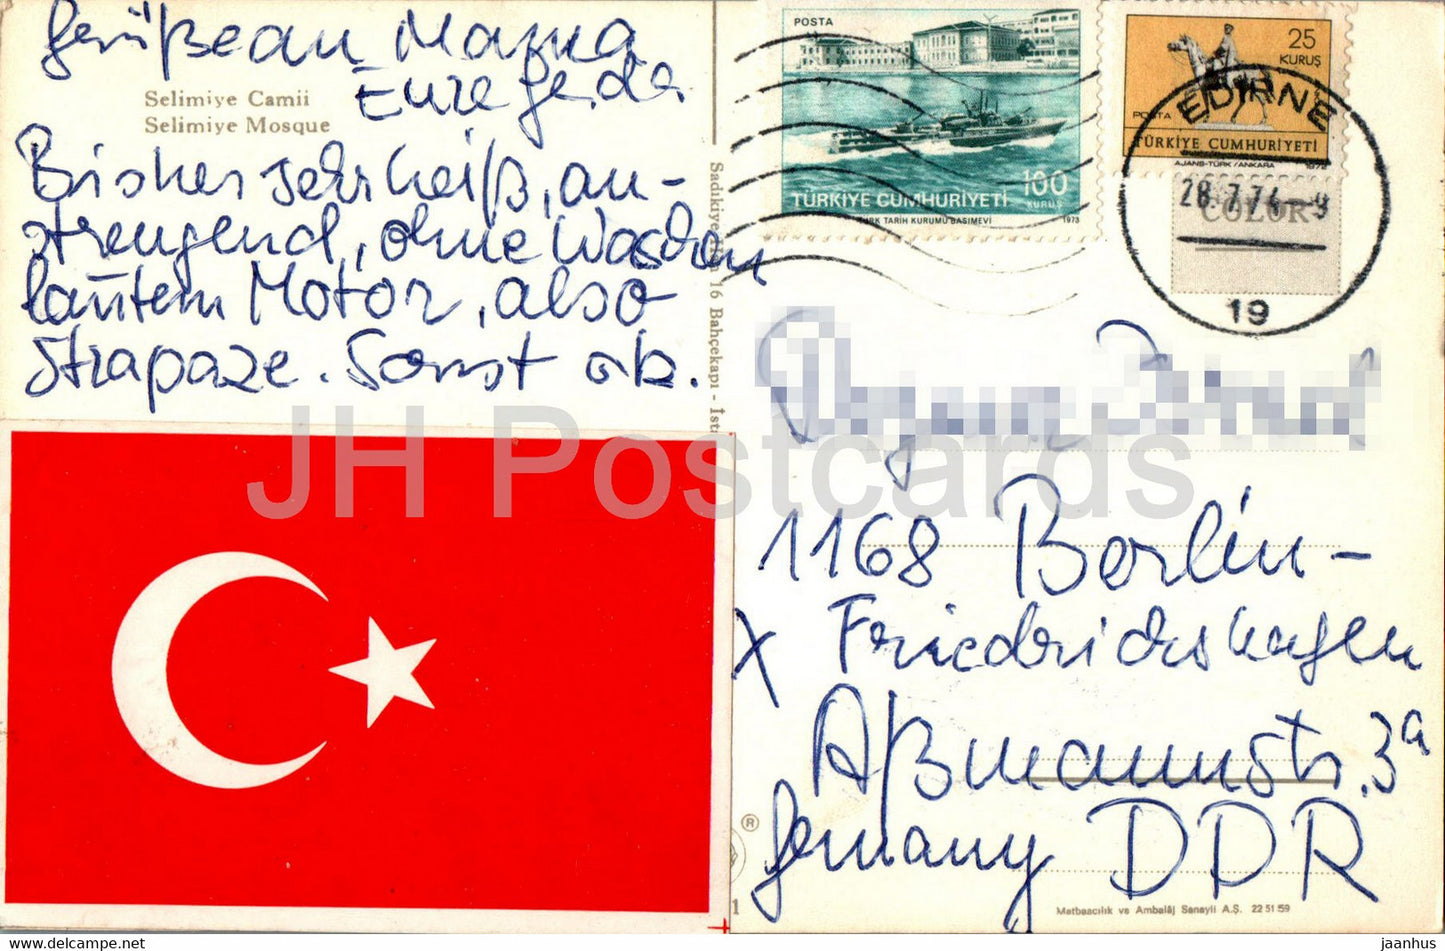 Grüße an Mama
Eure Gerda
Selimiye Camii
Selimiye Mosque
Bisher sehr heiß, an-
strengend, ohne Waschen
lautem Motor, also
Strapaze. Sonst ok.
16 Bahçekapı - İst
POSTA
100
KURUŞ
TÜRKİYE CUMHURİYETİ
TÜRK TARİH KURUMU BASIMEVİ 1973
25
KURUŞ
POSTA
TÜRKİYE CUMHURİYETİ
AJANS-TÜRK/ANKARA 1972
EDİRNE
28.7.74-9
COLOR
19
1168 Berlin-
X Friedrichshagen
Aßmannstr. 3a
Germany DDR
®
1
Matbaacılık ve Ambalâj Sanayii A.Ş. 22 51 59
JH Postcards
delcampe.net
jaanhus